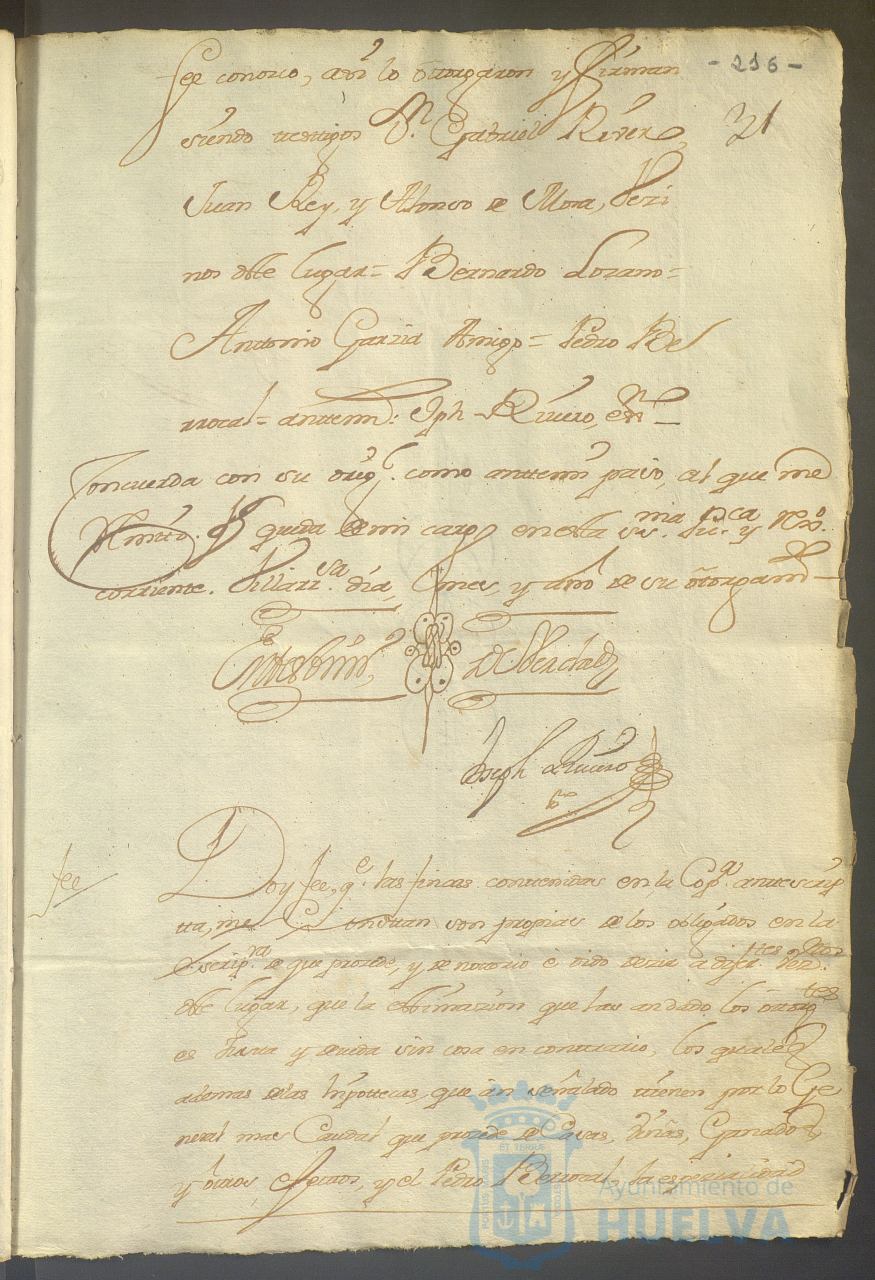 - 216 -
31
fee conozco, asi lo otorgaron y firman
siendo testigos Dn. Gabriel River
Juan Rey, y Alonso de Mora, Vezi
nos dste lugar = Bernardo Lozano =
Anttonio Garzia Amigo = Pedro Be
rrocal = anttemi: Jph Rivero, es.no
Concuerda con su orig.l como anttemi pasò, al que me
Remito. queda en mi cargo en esta
corriente. Villarr.sa dia, mes, y año de su otorgam.to
En testim.o de Verdad
Joseph de Rivero
fee
Doy fee, q.e las fincas conttenidas en la Cop.a anttescrip
tta, me Consttan son propias de los obligados en la
Escrip.ra de que prozede, y de nottorio è oido dezir a difer.tes
dste lugar, que la esttimazion que han dado los ottorg.tes
es Justa y devida sin cosa en conttrario, los quales
ademas delas Hipottecas que àn señalado ttienen por lo Ge
neral mas Caudal que prozede de Casas, Viñas, Ganados
y ôttros efecttos, y el Pedro Berrocal, la espezialidad
Ayuntamiento de
HUELVA